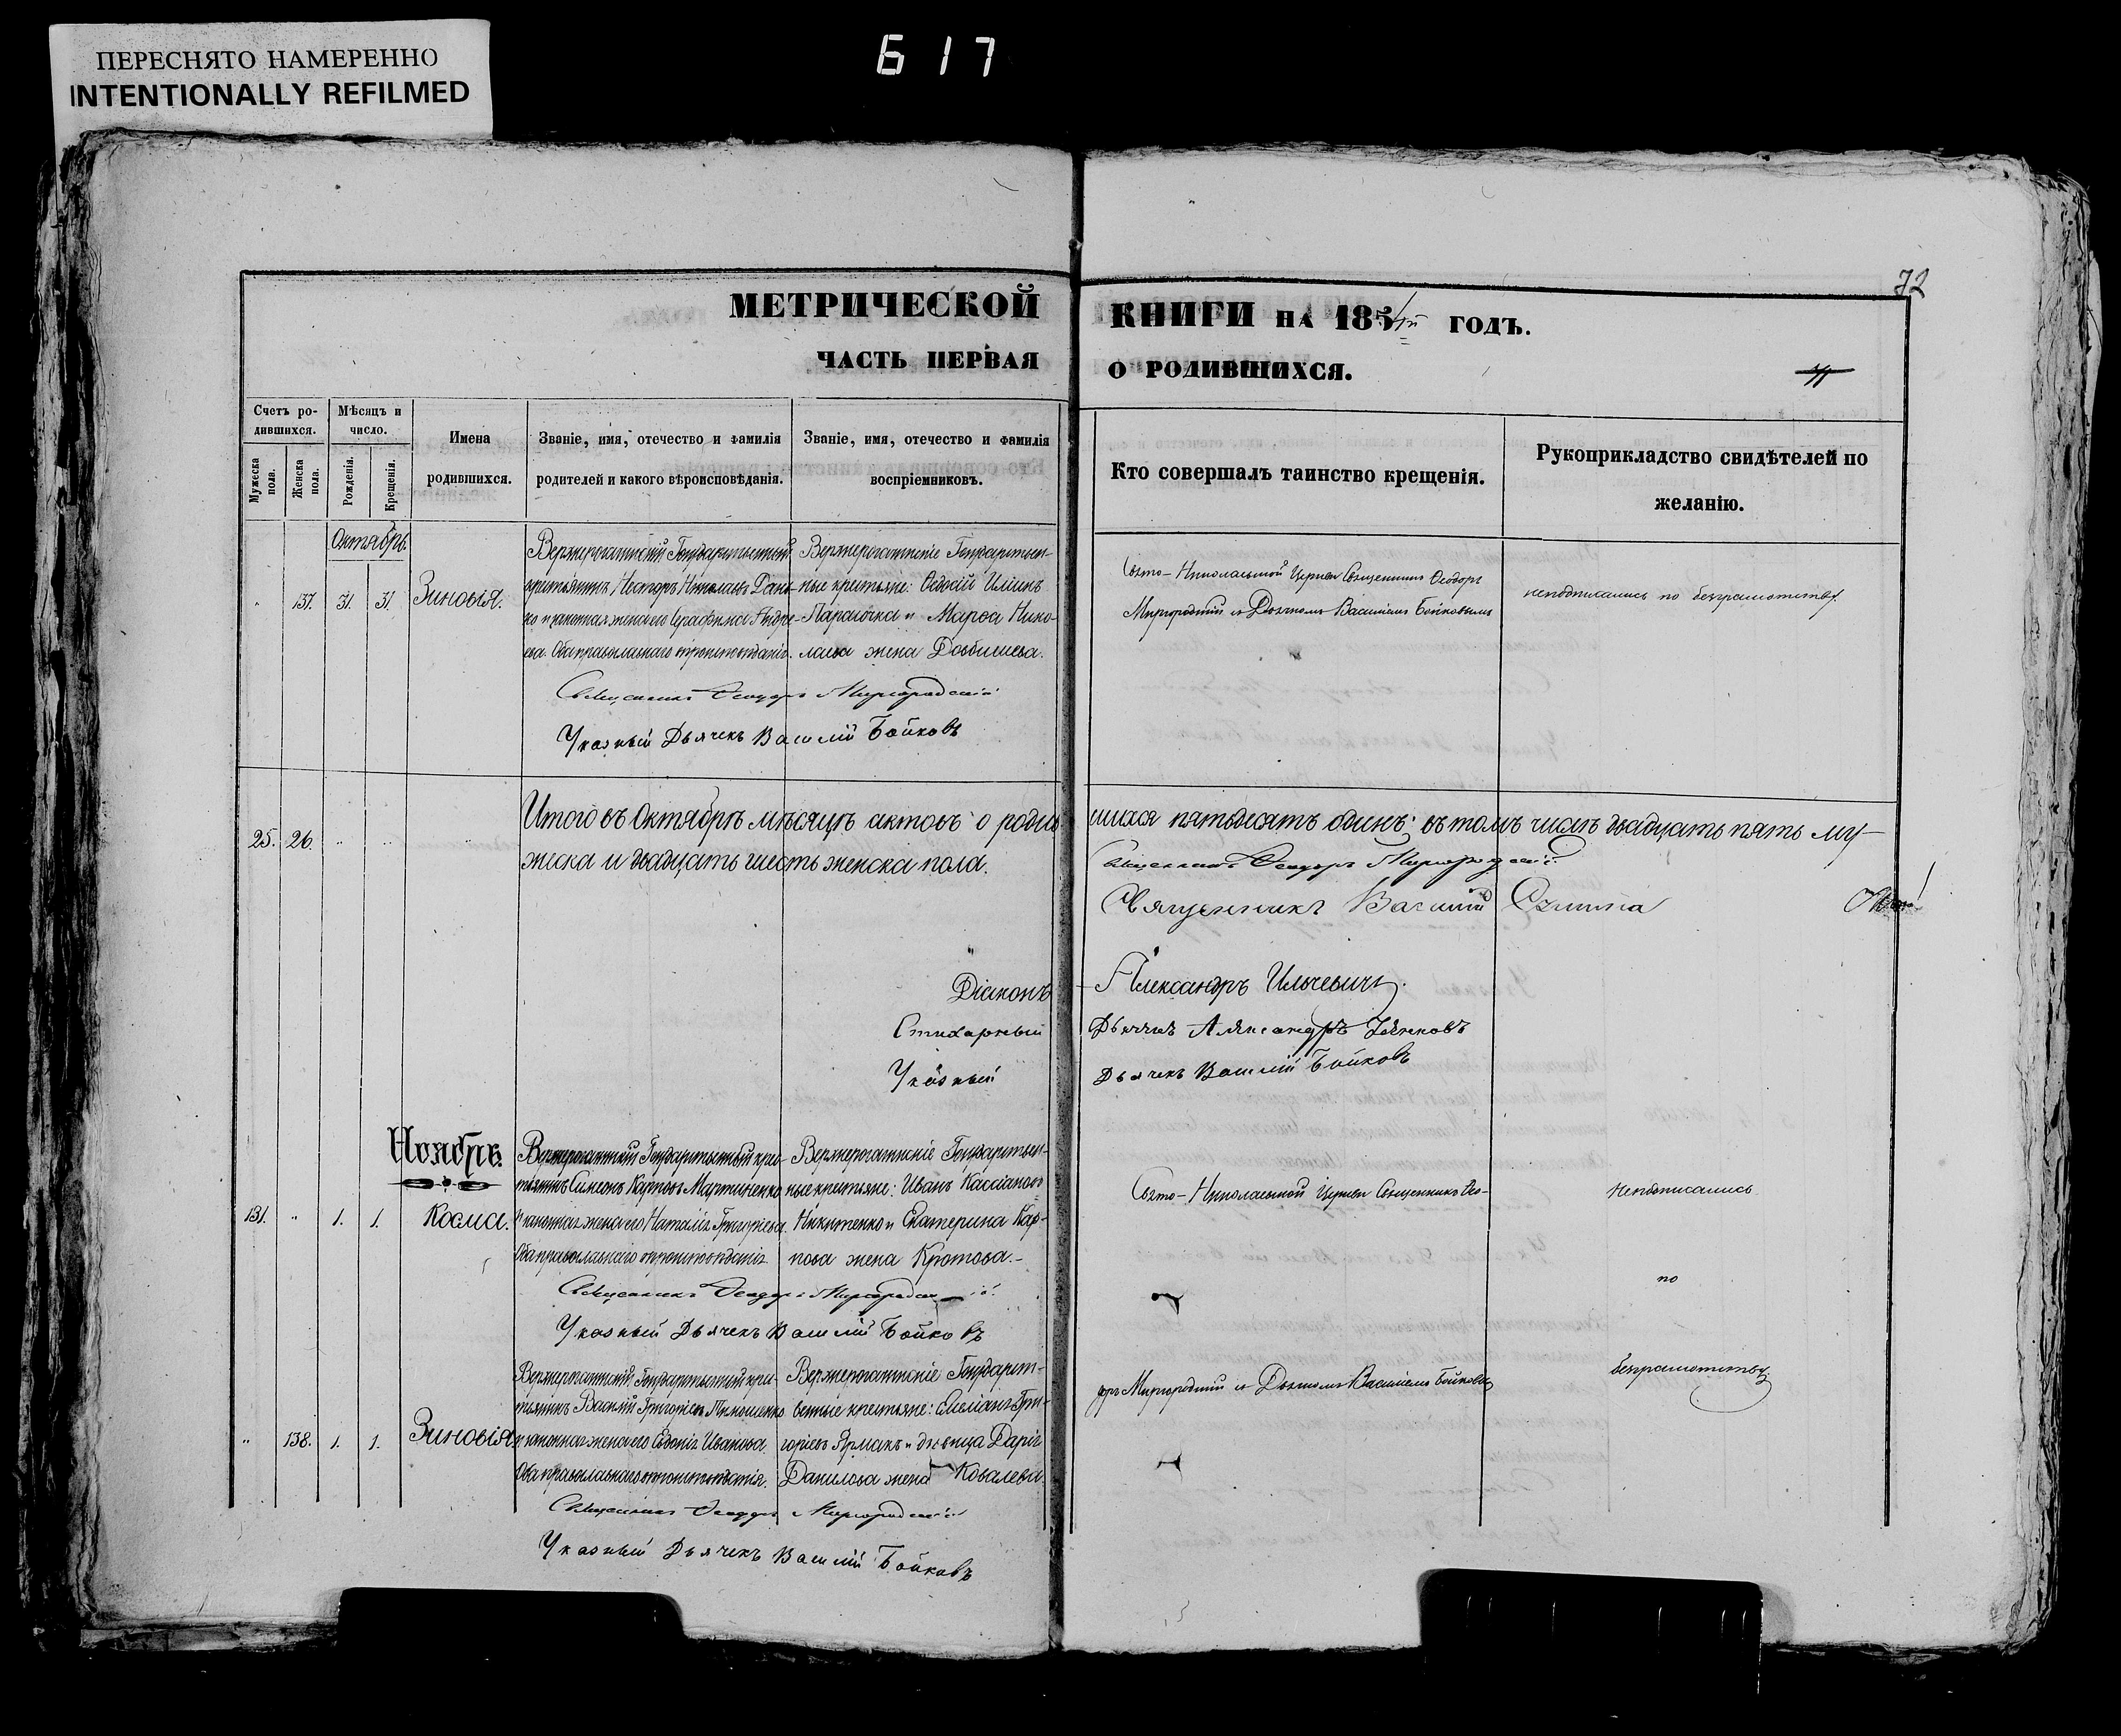 ПЕРЕСНЯТО НАМЕРЕННО
INTENTIONALLY REFILMED
617
72
МЕТРИЧЕСКОЙ КНИГИ НА 185 ГОДЪ.
ЧАСТЬ ПЕРВАЯ О РОДИВШИХСЯ.
Счетъ ро-
дившихся.
Мужеска пола.
Женска пола.
Мѣсяцъ и
число.
Рожденія.
Крещенія.
Имена
родившихся.
Званіе, имя, отечество и фамилія
родителей и какого вѣроисповѣданія.
Званіе, имя, отечество и фамилія
воспріемниковъ.
Кто совершалъ таинство крещенія.
Рукоприкладство свидѣтелей по
желанію.
Октябрь.
" 137. 31. 31. Зиновія.
Верхнерогачискій Государственный
крестьянинъ Несторъ Николаевъ Дань-
ко и законная жена его Серафима Андре-
ева. Оба православнаго вѣроисповѣданія.
Верхнерогачискіе Государствен-
ные крестьяне: Ѳедосій Илiинъ
Параючка и Марѳа Нико-
лаева жена Довбишева.
Свято-Николаевской Церкви Священникъ Ѳеодоръ
Миргородскій съ Дьячкомъ Василіемъ Бойковымъ
неподписались по безграмотству.
Священникъ Ѳеодоръ Миргородскій
Указный Дьячекъ Василій Бойковъ
25. 26. " " "
Итого въ Октябрѣ мѣсяцѣ актовъ о родив-
шихся пятьдесятъ одинъ; въ томъ числѣ двадцать пять му-
жеска и двадцать шесть женска пола.
Священникъ Ѳеодоръ Миргородскій
Священникъ Василій
Діаконъ Александръ Ильчевичъ.
Стихарный Дьячекъ Александръ
Указный Дьячекъ Василій Бойковъ
Ноябрь.
131. " 1. 1. Косма.
Верхнерогачискій Государственный крес-
тьянинъ Симеонъ Карповъ Мартиненко
и законная жена его Наталія Григорьева.
Оба православнаго вѣроисповѣданія.
Верхнерогачискіе Государствен-
ные крестьяне: Иванъ Кассіановъ
Никитенко и Екатерина Кар-
пова жена Кротова.
Свято-Николаевской Церкви Священникъ Ѳео-
Неподписались
Священникъ Ѳеодоръ Миргородскій
Указный Дьячекъ Василій Бойковъ
по
" 138. 1. 1. Зиновія
Верхнерогачискій Государственный крес-
тьянинъ Василій Григорьевъ
и законная жена его Евдокія Иванова.
Оба православнаго вѣроисповѣданія.
Верхнерогачискіе Государст-
венные крестьяне: Емеліанъ Гри-
горіевъ Ярмакъ и дѣвица Дарія
Данилова жена Ковалева.
доръ Миргородскій съ Дьячкомъ Василіемъ Бойковымъ
безграмотству
Священникъ Ѳеодоръ Миргородскій
Указный Дьячекъ Василій Бойковъ